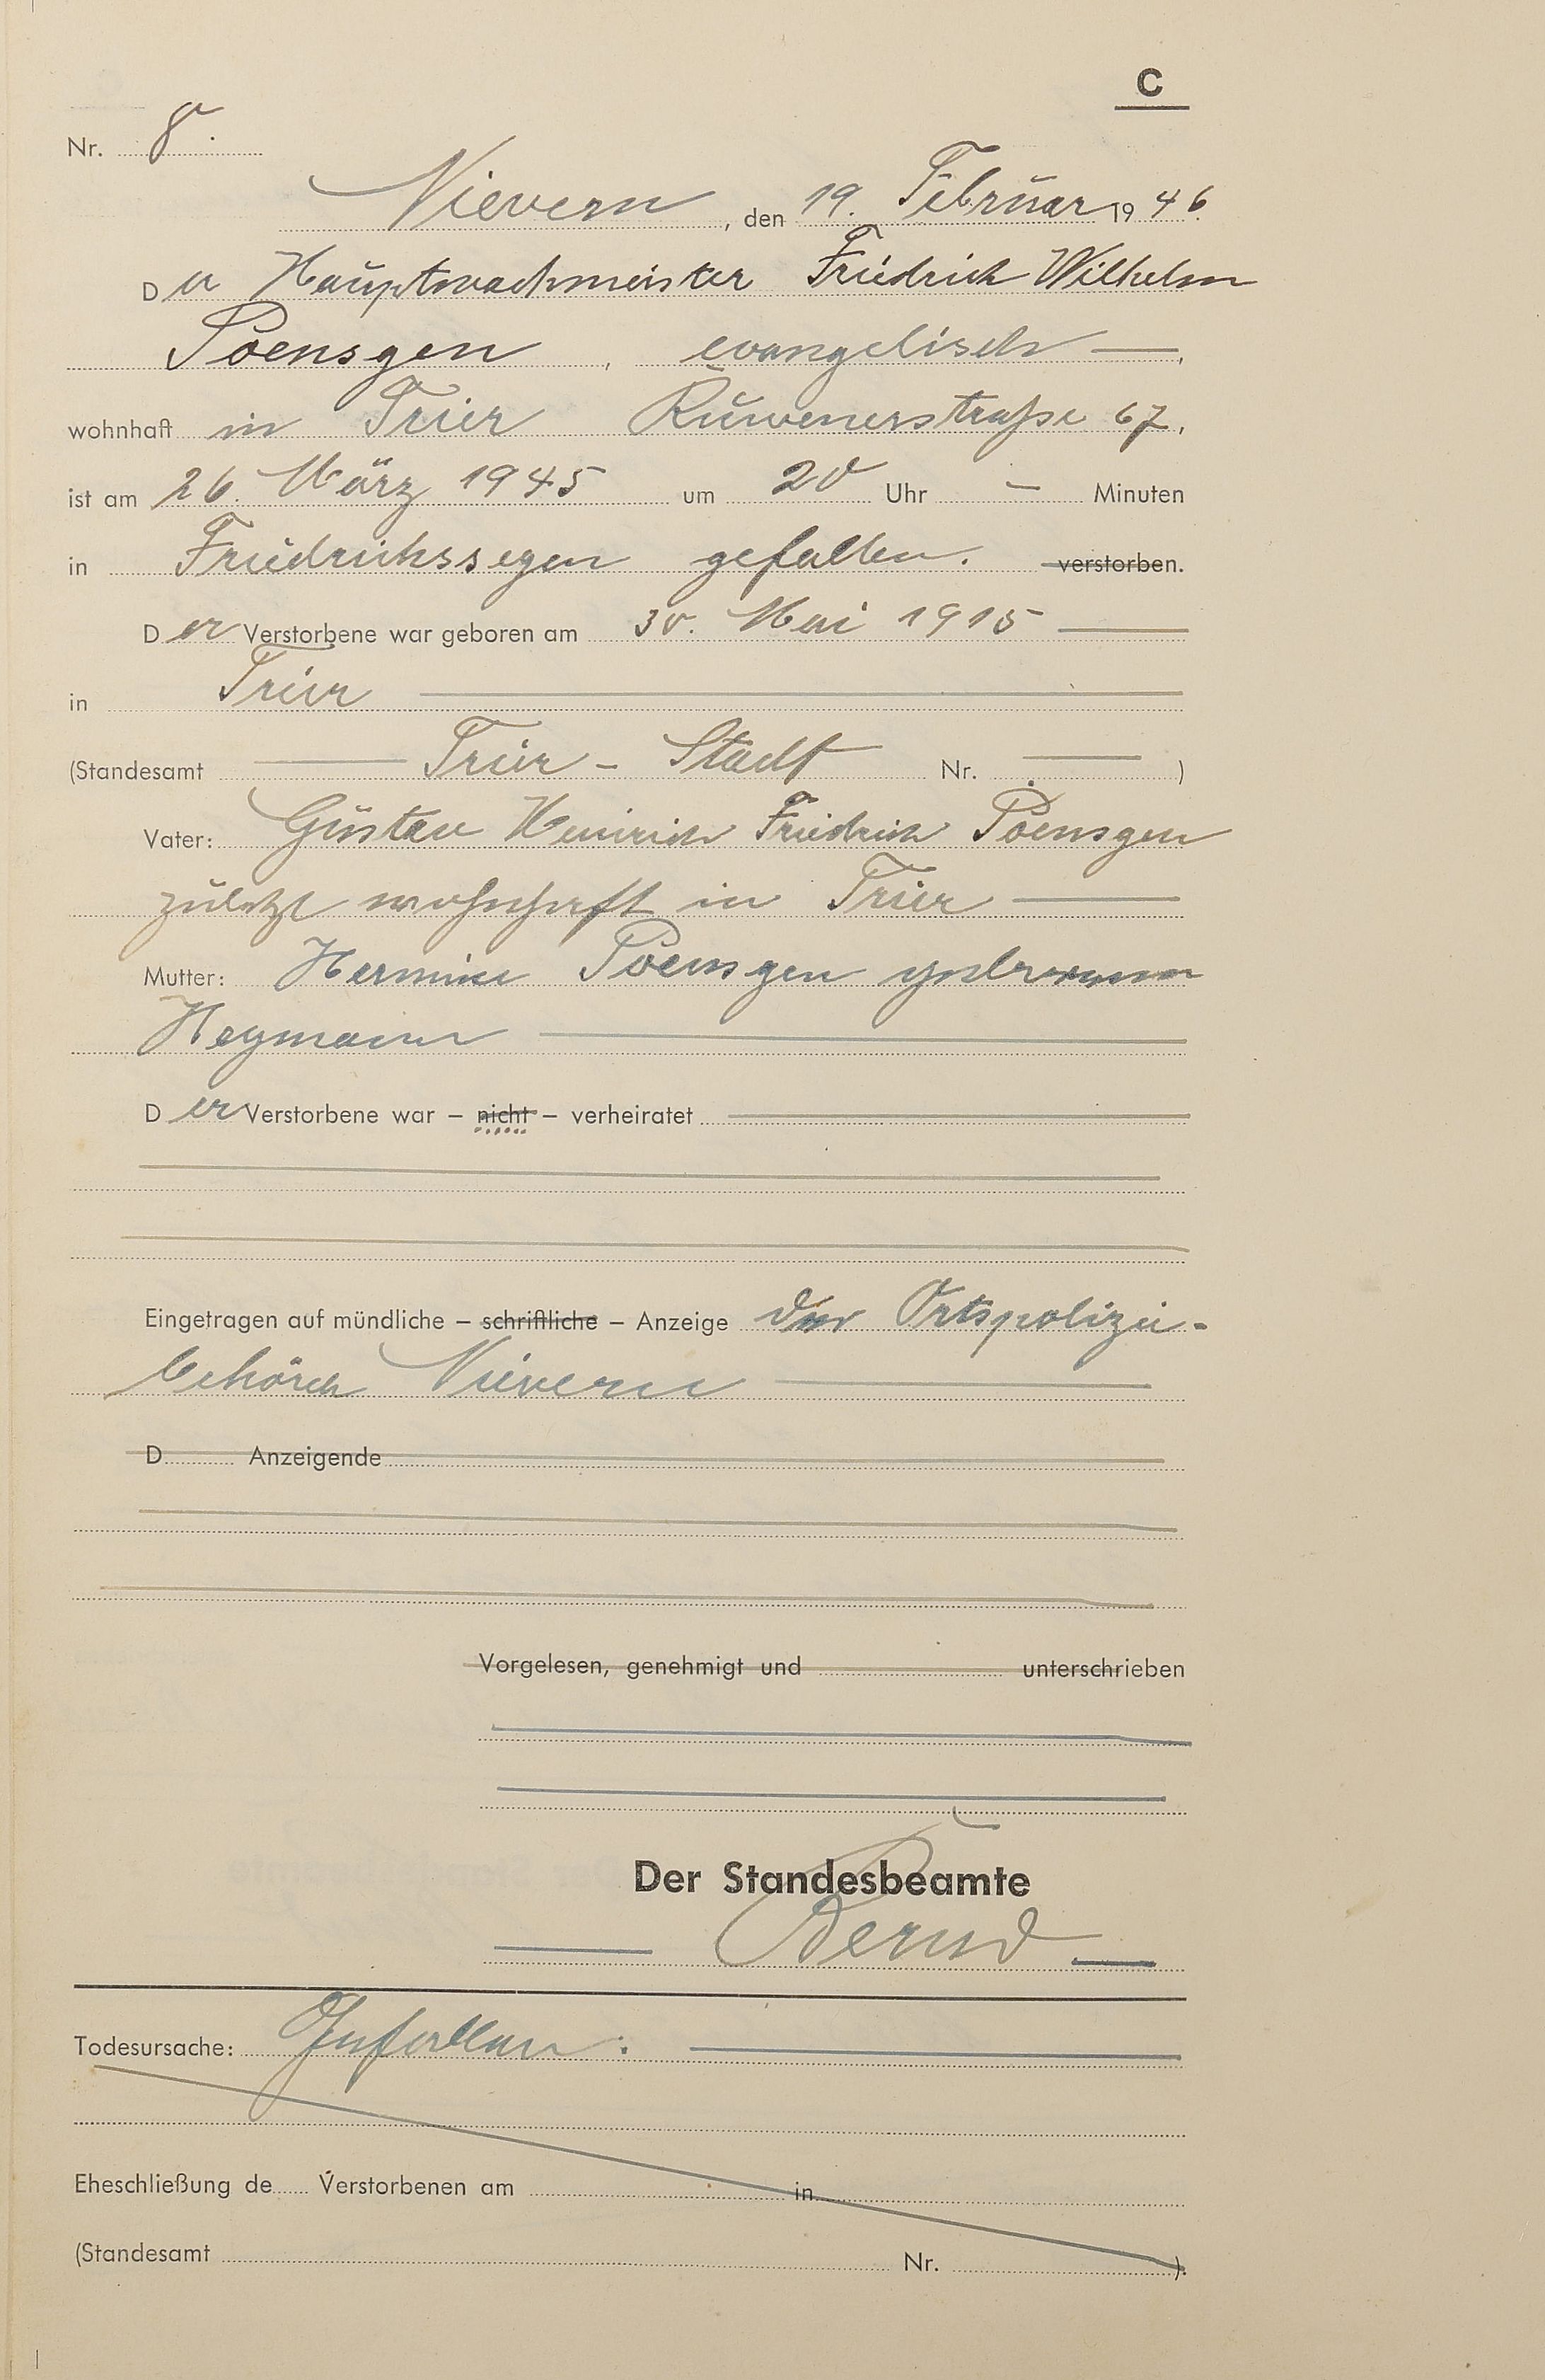 C
Nr. 8.
Nievern, den 19. Februar 1946.
Der Hauptwachmeister Friedrich Wilhelm
Poensgen, evangelisch —,
wohnhaft in Trier Ruwenerstraße 67,
ist am 26. März 1945 um 20 Uhr — Minuten
in Friedrichssegen gefallen. verstorben.
Der Verstorbene war geboren am 30. Mai 1915 —
in Trier —
(Standesamt — Trier - Stadt Nr. — )
Vater: Gustav Heinrich Friedrich Poensgen
zuletzt wohnhaft in Trier —
Mutter: Hermine Poensgen geborene
Heymann —
Der Verstorbene war – nicht – verheiratet
Eingetragen auf mündliche – schriftliche – Anzeige der Ortspolizei-
behörde Nievern —
D Anzeigende
Vorgelesen, genehmigt und unterschrieben
Der Standesbeamte
— Bernd —
Todesursache: Gefallen. —
Eheschließung de Verstorbenen am in
(Standesamt Nr. ).